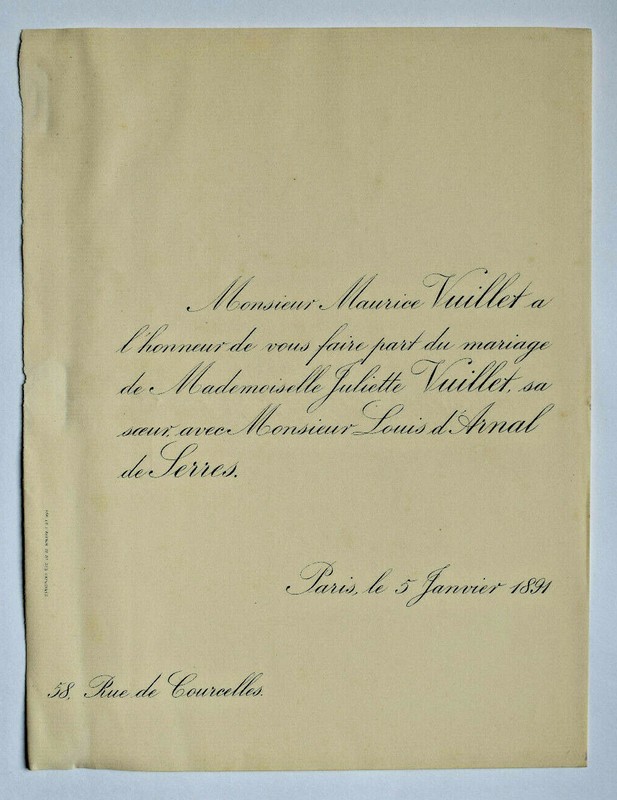 Monsieur Maurice Vuillet a
l'honneur de vous faire part du mariage
de Mademoiselle Juliette Vuillet, sa
sœur, avec Monsieur Louis d'Arnal
de Serres.
Paris, le 5 Janvier 1891
58, Rue de Courcelles.